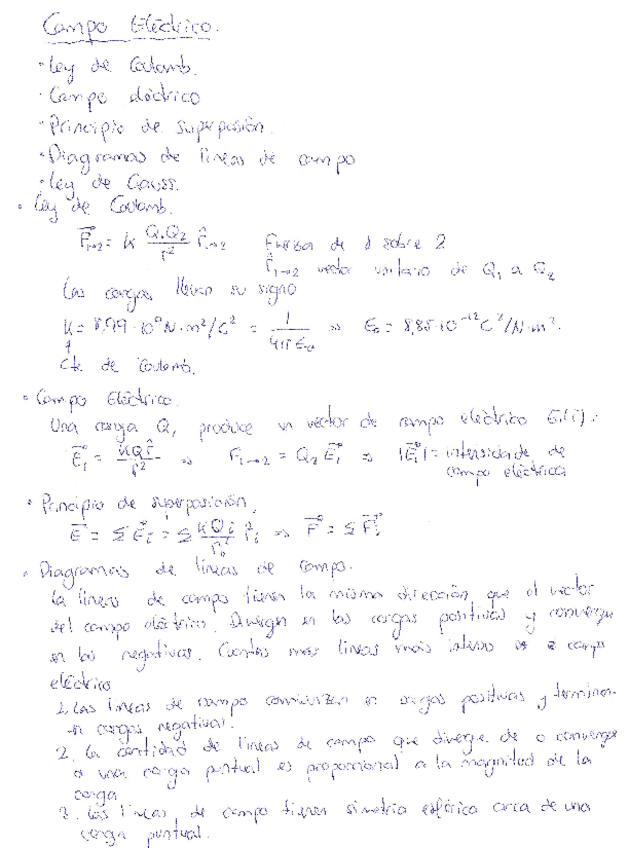 Campo Eléctrico.
· Ley de Coulomb.
· Campo eléctrico
· Principio de superposión.
· Diagramas de líneas de campo
· Ley de Gauss.
· Ley de Coulomb.
F⃗₁→₂ = K Q₁Q₂/r² r̂₁→₂ Fuerza de 1 sobre 2
r̂₁→₂ vector unitario de Q₁ a Q₂
Las cargas llevan su signo
K = 8,99·10⁹ N·m²/C² = 1/4πε₀ ⇒ ε₀ = 8,85·10⁻¹² C²/N·m².
Cte de Coulomb.
· Campo Eléctrico.
Una carga Q, produce un vector de campo eléctrico
E⃗₁ = KQr̂/r² ⇒ F₁→₂ = Q₂E⃗₁ ⇒ |E⃗₁| = intensidad de
campo eléctrica
· Principio de superposición.
E⃗ = Σ E⃗i = Σ KQi/ri² r̂i ⇒ F⃗ = Σ F⃗i
· Diagramas de líneas de campo.
La líneas de campo tienen la misma dirección que el vector
del campo eléctrico. Divergen en las cargas positivas y convergen
en las negativas. Cuantas más líneas más intenso es campo
eléctrico
1. Las líneas de campo comienzan en cargas positivas y terminan
en cargas negativas.
2. La cantidad de líneas de campo que diverge de o converge
a una carga puntual es proporcional a la magnitud de la
carga
3. Las líneas de campo tienen simetría esférica cerca de una
carga puntual.